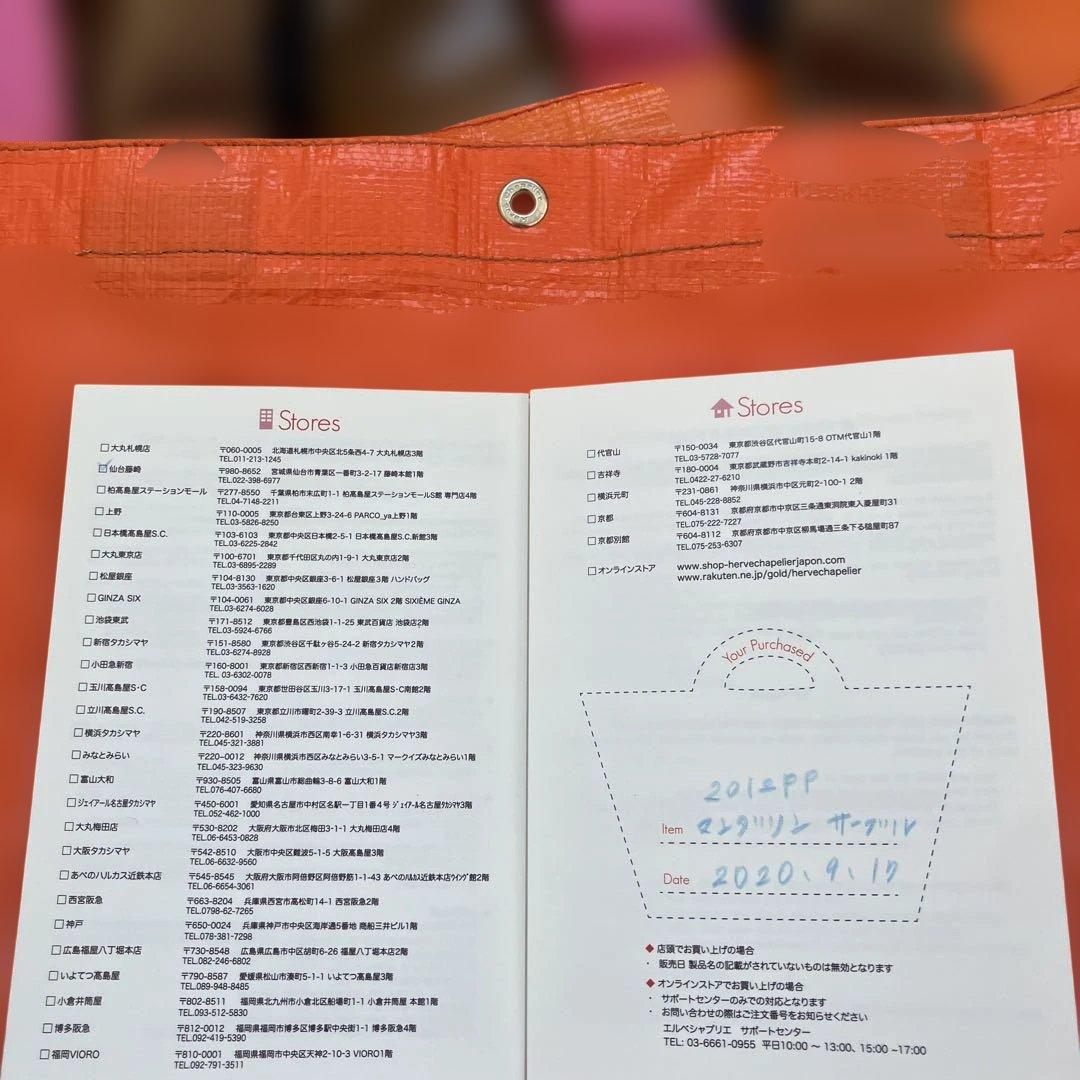 Stores
□大丸札幌店 〒060-0005 北海道札幌市中央区北5条西4-7 大丸札幌店3階
TEL.011-213-1245
☑仙台藤崎 〒980-8652 宮城県仙台市青葉区一番町3-2-17 藤崎本館1階
TEL.022-398-6977
□柏髙島屋ステーションモール 〒277-8550 千葉県柏市末広町1-1 柏髙島屋ステーションモールS館 専門店4階
TEL.04-7148-2211
□上野 〒110-0005 東京都台東区上野3-24-6 PARCO_ya上野1階
TEL.03-5826-8250
□日本橋髙島屋S.C. 〒103-6103 東京都中央区日本橋2-5-1 日本橋髙島屋S.C.新館3階
TEL.03-6225-2842
□大丸東京店 〒100-6701 東京都千代田区丸の内1-9-1 大丸東京店2階
TEL.03-6895-2289
□松屋銀座 〒104-8130 東京都中央区銀座3-6-1 松屋銀座3階 ハンドバッグ
TEL.03-3563-1620
□GINZA SIX 〒104-0061 東京都中央区銀座6-10-1 GINZA SIX 2階 SIXIÈME GINZA
TEL.03-6274-6028
□池袋東武 〒171-8512 東京都豊島区西池袋1-1-25 東武百貨店 池袋店2階
TEL.03-5924-6766
□新宿タカシマヤ 〒151-8580 東京都渋谷区千駄ヶ谷5-24-2 新宿タカシマヤ2階
TEL.03-6274-8928
□小田急新宿 〒160-8001 東京都新宿区西新宿1-1-3 小田急百貨店新宿店3階
TEL. 03-6302-0078
□玉川髙島屋S・C 〒158-0094 東京都世田谷区玉川3-17-1 玉川髙島屋S・C南館2階
TEL.03-6432-7620
□立川髙島屋S.C. 〒190-8507 東京都立川市曙町2-39-3 立川髙島屋S.C.2階
TEL.042-519-3258
□横浜タカシマヤ 〒220-8601 神奈川県横浜市西区南幸1-6-31 横浜タカシマヤ3階
TEL.045-321-3881
□みなとみらい 〒220-0012 神奈川県横浜市西区みなとみらい3-5-1 マークイズみなとみらい1階
TEL.045-323-9630
□富山大和 〒930-8505 富山県富山市総曲輪3-8-6 富山大和1階
TEL.076-407-6680
□ジェイアール名古屋タカシマヤ 〒450-6001 愛知県名古屋市中村区名駅一丁目1番4号 ジェイアール名古屋タカシマヤ3階
TEL.052-462-1000
□大丸梅田店 〒530-8202 大阪府大阪市北区梅田3-1-1 大丸梅田店4階
TEL.06-6453-0828
□大阪タカシマヤ 〒542-8510 大阪市中央区難波5-1-5 大阪高島屋3階
TEL.06-6632-9560
□あべのハルカス近鉄本店 〒545-8545 大阪府大阪市阿倍野区阿倍野筋1-1-43 あべのハルカス近鉄本店ウイング館2階
TEL.06-6654-3061
□西宮阪急 〒663-8204 兵庫県西宮市高松町14-1 西宮阪急2階
TEL.0798-62-7265
□神戸 〒650-0024 兵庫県神戸市中央区海岸通5番地 商船三井ビル1階
TEL.078-381-7298
□広島福屋八丁堀本店 〒730-8548 広島県広島市中区胡町6-26 福屋八丁堀本店2階
TEL.082-246-6802
□いよてつ髙島屋 〒790-8587 愛媛県松山市湊町5-1-1 いよてつ髙島屋3階
TEL.089-948-8485
□小倉井筒屋 〒802-8511 福岡県北九州市小倉北区船場町1-1 小倉井筒屋 本館1階
TEL.093-512-5830
□博多阪急 〒812-0012 福岡県福岡市博多区博多駅中央街1-1 博多阪急4階
TEL.092-419-5390
□福岡VIORO 〒810-0001 福岡県福岡市中央区天神2-10-3 VIORO1階
TEL.092-791-3511
Stores
□代官山 〒150-0034 東京都渋谷区代官山町15-8 OTM代官山1階
TEL.03-5728-7077
□吉祥寺 〒180-0004 東京都武蔵野市吉祥寺本町2-14-1 kakinoki 1階
TEL.0422-27-6210
□横浜元町 〒231-0861 神奈川県横浜市中区元町2-100-1 2階
TEL.045-228-8852
□京都 〒604-8131 京都府京都市中京区三条通東洞院東入菱屋町31
TEL.075-222-7227
□京都別館 〒604-8112 京都府京都市中京区柳馬場通三条下る槌屋町87
TEL.075-253-6307
□オンラインストア www.shop-hervechapelierjapon.com
www.rakuten.ne.jp/gold/hervechapelier
Your Purchased
2012PP
Item マンダリン サークル
Date 2020、9、17
◆店頭でお買い上げの場合
・ 販売日 製品名の記載がされていないものは無効となります
◆オンラインストアでお買い上げの場合
・ サポートセンターのみでの対応となります
・ お問い合わせの際はご注文番号をお知らせください
エルベシャプリエ サポートセンター
TEL: 03-6661-0955 平日10:00 ～ 13:00、15:00 ~17:00